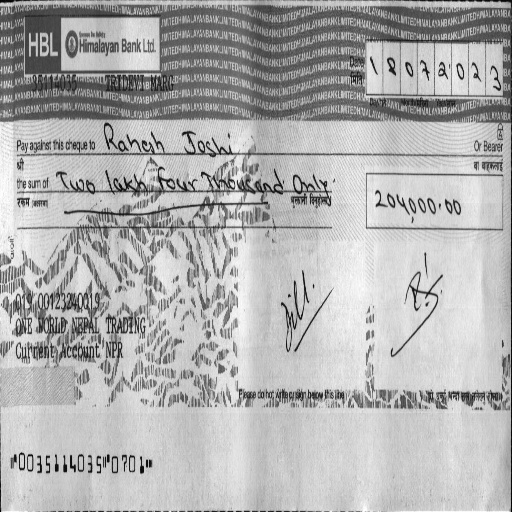 HBL Himalayan Bank Ltd.
35114035 TRIDEVI MARG
Date
मिति
18072023
Pay against this cheque to Rakesh Joshi Or Bearer
श्री
the sum of Two lakh Four Thousand Only.
रकम
204,000.00
019 00123240019
ONE WORLD NEPAL TRADING
Current Account NPR
Please do not write or sign below this line
⑈0035114035⑈0701⑈